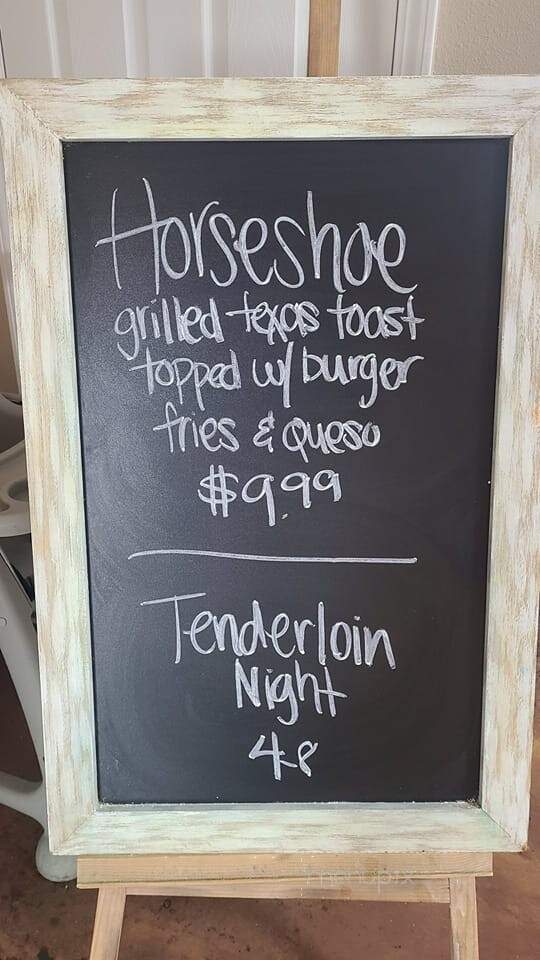 Horseshoe
grilled texas toast
topped w/ burger
fries & queso
$9.99
Tenderloin
Night
4-8